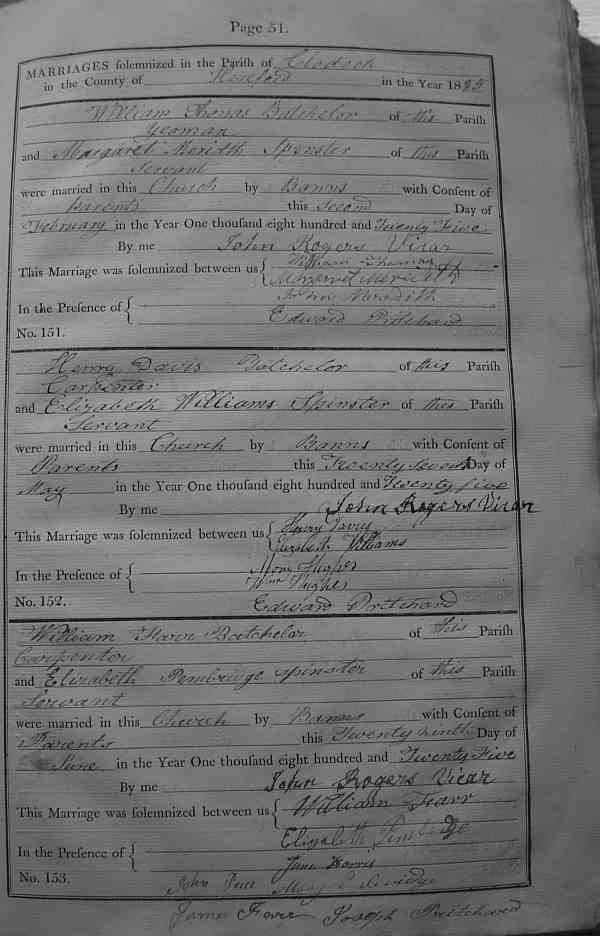 Page 51.
MARRIAGES solemnized in the Parish of Clodock
in the County of Hereford in the Year 1825
William Thomas Batchelor of this Parish
Yeoman
and Margaret Meridth Spenster of this Parish
Servant
were married in this Church by Banns with Consent of
parents this Second Day of
February in the Year One thousand eight hundred and Twenty Five
By me John Rogers Vicar
This Marriage was solemnized between us { William Thomas
Margaret Meredith
Meredith
In the Presence of { Edward Pritchard
No. 151.
Henry Davis Batchelor of this Parish
Carpenter
and Elizabeth Williams Spinster of this Parish
Servant
were married in this Church by Banns with Consent of
Parents this Twenty Day of
May in the Year One thousand eight hundred and Twenty five
By me John Rogers Vicar
This Marriage was solemnized between us { Henry Davies
Elizabeth Williams
In the Presence of { Hughes
Wm Hughes
No. 152. Edward Pritchard
William Batchelor of this Parish
Carpenter
and Elizabeth Pembridge spinster of this Parish
Servant
were married in this Church by Banns with Consent of
Parents this Twenty ninth Day of
June in the Year One thousand eight hundred and Twenty Five
By me John Rogers Vicar
This Marriage was solemnized between us { William
Elizabeth Pembridge
In the Presence of { Jane Harris
No. 153. John Mary
James Joseph Pritchard